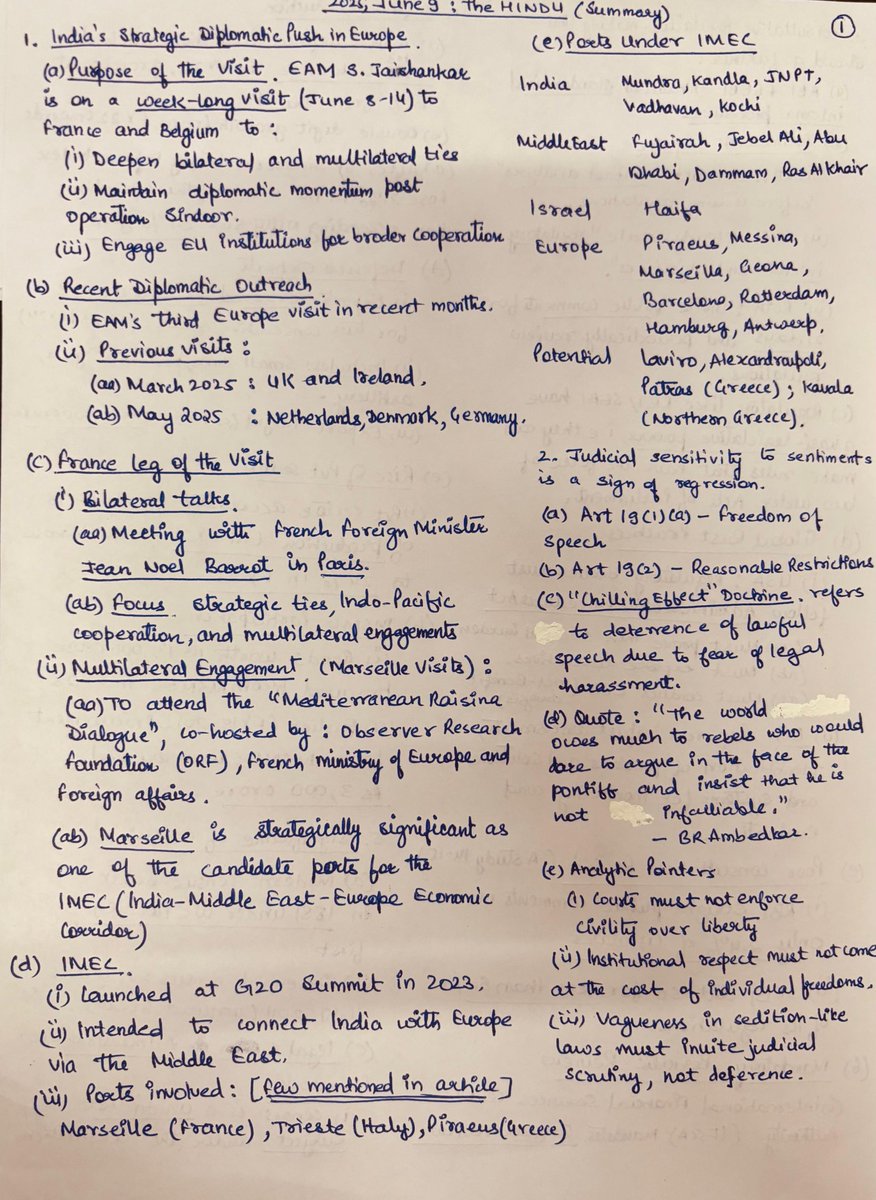 2025, June 9 : The HINDU (Summary)
1
1. India's Strategic Diplomatic Push in Europe.
(a) Purpose of the Visit. EAM S. Jaishankar
is on a week-long visit (June 8-14) to
France and Belgium to :
(i) Deepen bilateral and multilateral ties
(ii) Maintain diplomatic momentum post
operation Sindoor.
(iii) Engage EU institutions for broder cooperation
(b) Recent Diplomatic Outreach
(i) EAM's third Europe visit in recent months.
(ii) Previous visits :
(aa) March 2025 : UK and Ireland.
(ab) May 2025 : Netherlands, Denmark, Germany.
(c) France leg of the Visit
(i) Bilateral talks.
(aa) Meeting with French Foreign Minister
Jean Noel Barrot in Paris.
(ab) Focus strategic ties, Indo-Pacific
cooperation, and multilateral engagements
(ii) Multilateral Engagement (Marseille Visits) :
(aa) To attend the "Mediterranean Raisina
Dialogue", co-hosted by : Observer Research
Foundation (ORF), French ministry of Europe and
Foreign affairs.
(ab) Marseille is strategically significant as
one of the candidate ports for the
IMEC (India-Middle East-Europe Economic
Corridor)
(d) IMEC.
(i) Launched at G20 Summit in 2023.
(ii) Intended to connect India with Europe
via the Middle East.
(iii) Ports involved : [few mentioned in article]
Marseille (France), Trieste (Italy), Piraeus (Greece)
(e) Ports Under IMEC
India Mundra, Kandla, JNPT,
Vadhavan, Kochi
Middle East Fujairah, Jebel Ali, Abu
Dhabi, Dammam, Ras Al Khair
Israel Haifa
Europe Piraeus, Messina,
Marseilla, Geona,
Barcelona, Rotterdam,
Hamburg, Antwerp.
Potential Laviro, Alexandraupoli,
Patras (Greece) ; Kavala
(Northern Greece).
2. Judicial sensitivity to sentiments
is a sign of regression.
(a) Art 19(1)(a) – Freedom of
Speech
(b) Art 19(2) – Reasonable Restrictions
(c) "Chilling Effect" Doctrine. refers
to deterrence of lawful
speech due to fear of legal
harassment.
(d) Quote : "The world
owes much to rebels who would
dare to argue in the face of the
pontiff and insist that he is
not infalliable."
– BR Ambedkar.
(e) Analytic Pointers
(i) Courts must not enforce
civility over liberty
(ii) Institutional respect must not come
at the cost of individual freedoms.
(iii) Vagueness in sedition-like
laws must invite judicial
scrutiny, not deference.